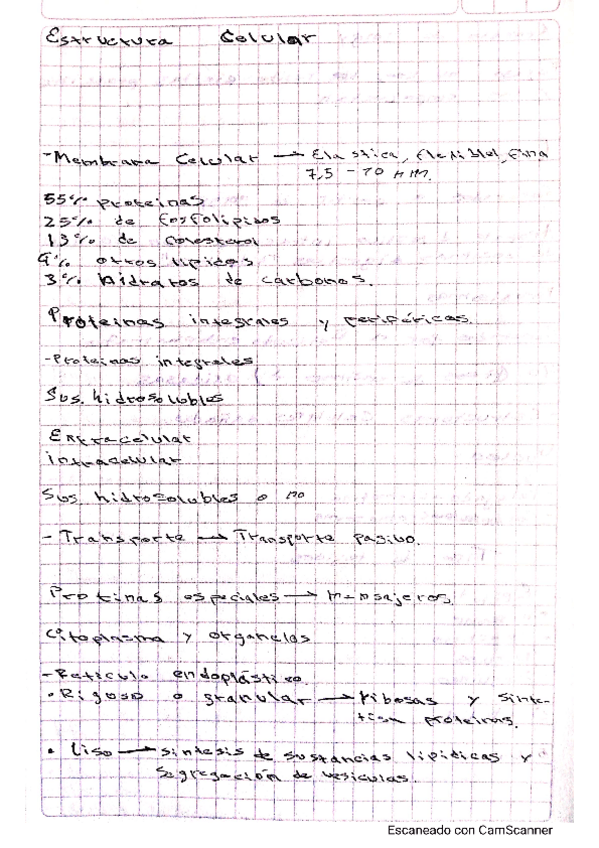 Estructura Celular
-Membrana Celular → Elastica, flexible, fina
7,5 - 10 nm.
55% proteinas
25% de fosfolipidos
13% de colesterol
4% otros lipidos
3% hidratos de carbonos.
Proteinas integrales y perifericas.
-Proteinas integrales
Sus. hidrosolubles
Extracelular
intracelular
Sus. hidrosolubles o no
- Transporte → Transporte pasivo.
Protinas especiales → mensajeros.
Citoplasma y organelos
-Reticulo endoplástico.
• Rigoso o granular → ribosas y sinte-
tiza proteinas.
• Liso → sintesis de sustancias lipidicas y
segregación de vesiculas.
Escaneado con CamScanner